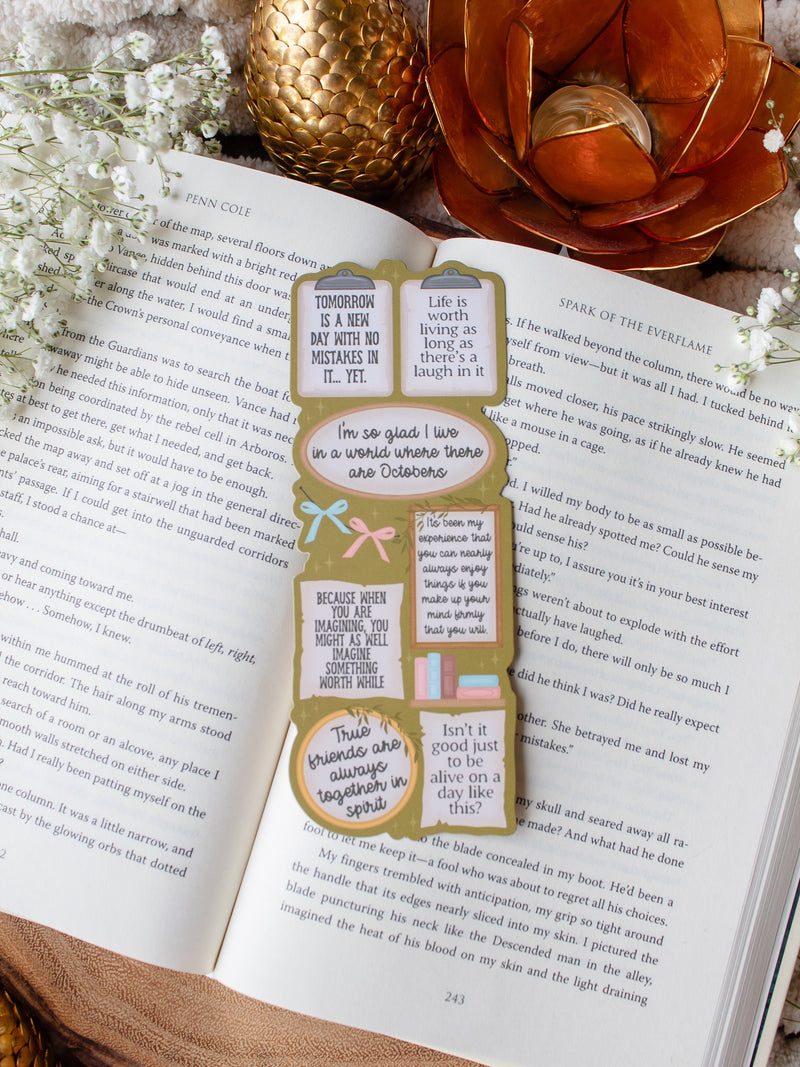 PENN COLE
of the map, several floors down
was marked with a bright red
Vance, hidden behind this door was
staircase that would end at an under
along the water, I would find a
the Crown's personal conveyance when
from the Guardians was to search the boat
away might be able to hide unseen. Vance had
he needed this information, only that it was
being coordinated by the rebel cell in Arboros.
at best to get there, get what I needed, and get back.
an impossible ask, but it would have to be enough.
the map and set off at a jog in the general direc-
palace's rear, aiming for a stairwell that had been marked
passage. If I could get into the unguarded corridors
staff, I stood a chance at—
hall.
heavy and coming toward me.
or hear anything except the drumbeat of left, right,
Somehow, I knew.
within me hummed at the roll of his tremen-
the corridor. The hair along my arms stood
reach toward him.
search of a room or an alcove, any place I
smooth walls stretched on either side.
Had I really been patting myself on the
?
one column. It was a little narrow, and
cast by the glowing orbs that dotted
2
TOMORROW
IS A NEW
DAY WITH NO
MISTAKES IN
IT... YET.
Life is
worth
living as
long as
there's a
laugh in it
I'm so glad I live
in a world where there
are Octobers
It's been my
experience that
you can nearly
always enjoy
things if you
make up your
mind firmly
that you will.
BECAUSE WHEN
YOU ARE
IMAGINING, YOU
MIGHT AS WELL
IMAGINE
SOMETHING
WORTH WHILE
True
friends are
always
together in
spirit
Isn't it
good just
to be
alive on a
day like
this?
SPARK OF THE EVERFLAME
If he walked beyond the column, there would be no way
myself from view—but it was all I had. I tucked behind
breath.
moved closer, his pace strikingly slow. He seemed
get where he was going, as if he already knew he had
like a mouse in a cage.
stopped.
I willed my body to be as small as possible be-
Had he already spotted me? Could he sense my
could sense his?
you're up to, I assure you it's in your best interest
immediately."
weren't about to explode with the effort
actually have laughed.
before I do, there will only be so much I
did he think I was? Did he really expect
other. She betrayed me and lost my
mistakes."
my skull and seared away all ra-
he made? And what had he done
to the blade concealed in my boot. He'd been a
fool to let me keep it—a fool who was about to regret all his choices.
My fingers trembled with anticipation, my grip so tight around
the handle that its edges nearly sliced into my skin. I pictured the
blade puncturing his neck like the Descended man in the alley,
imagined the heat of his blood on my skin and the light draining
243